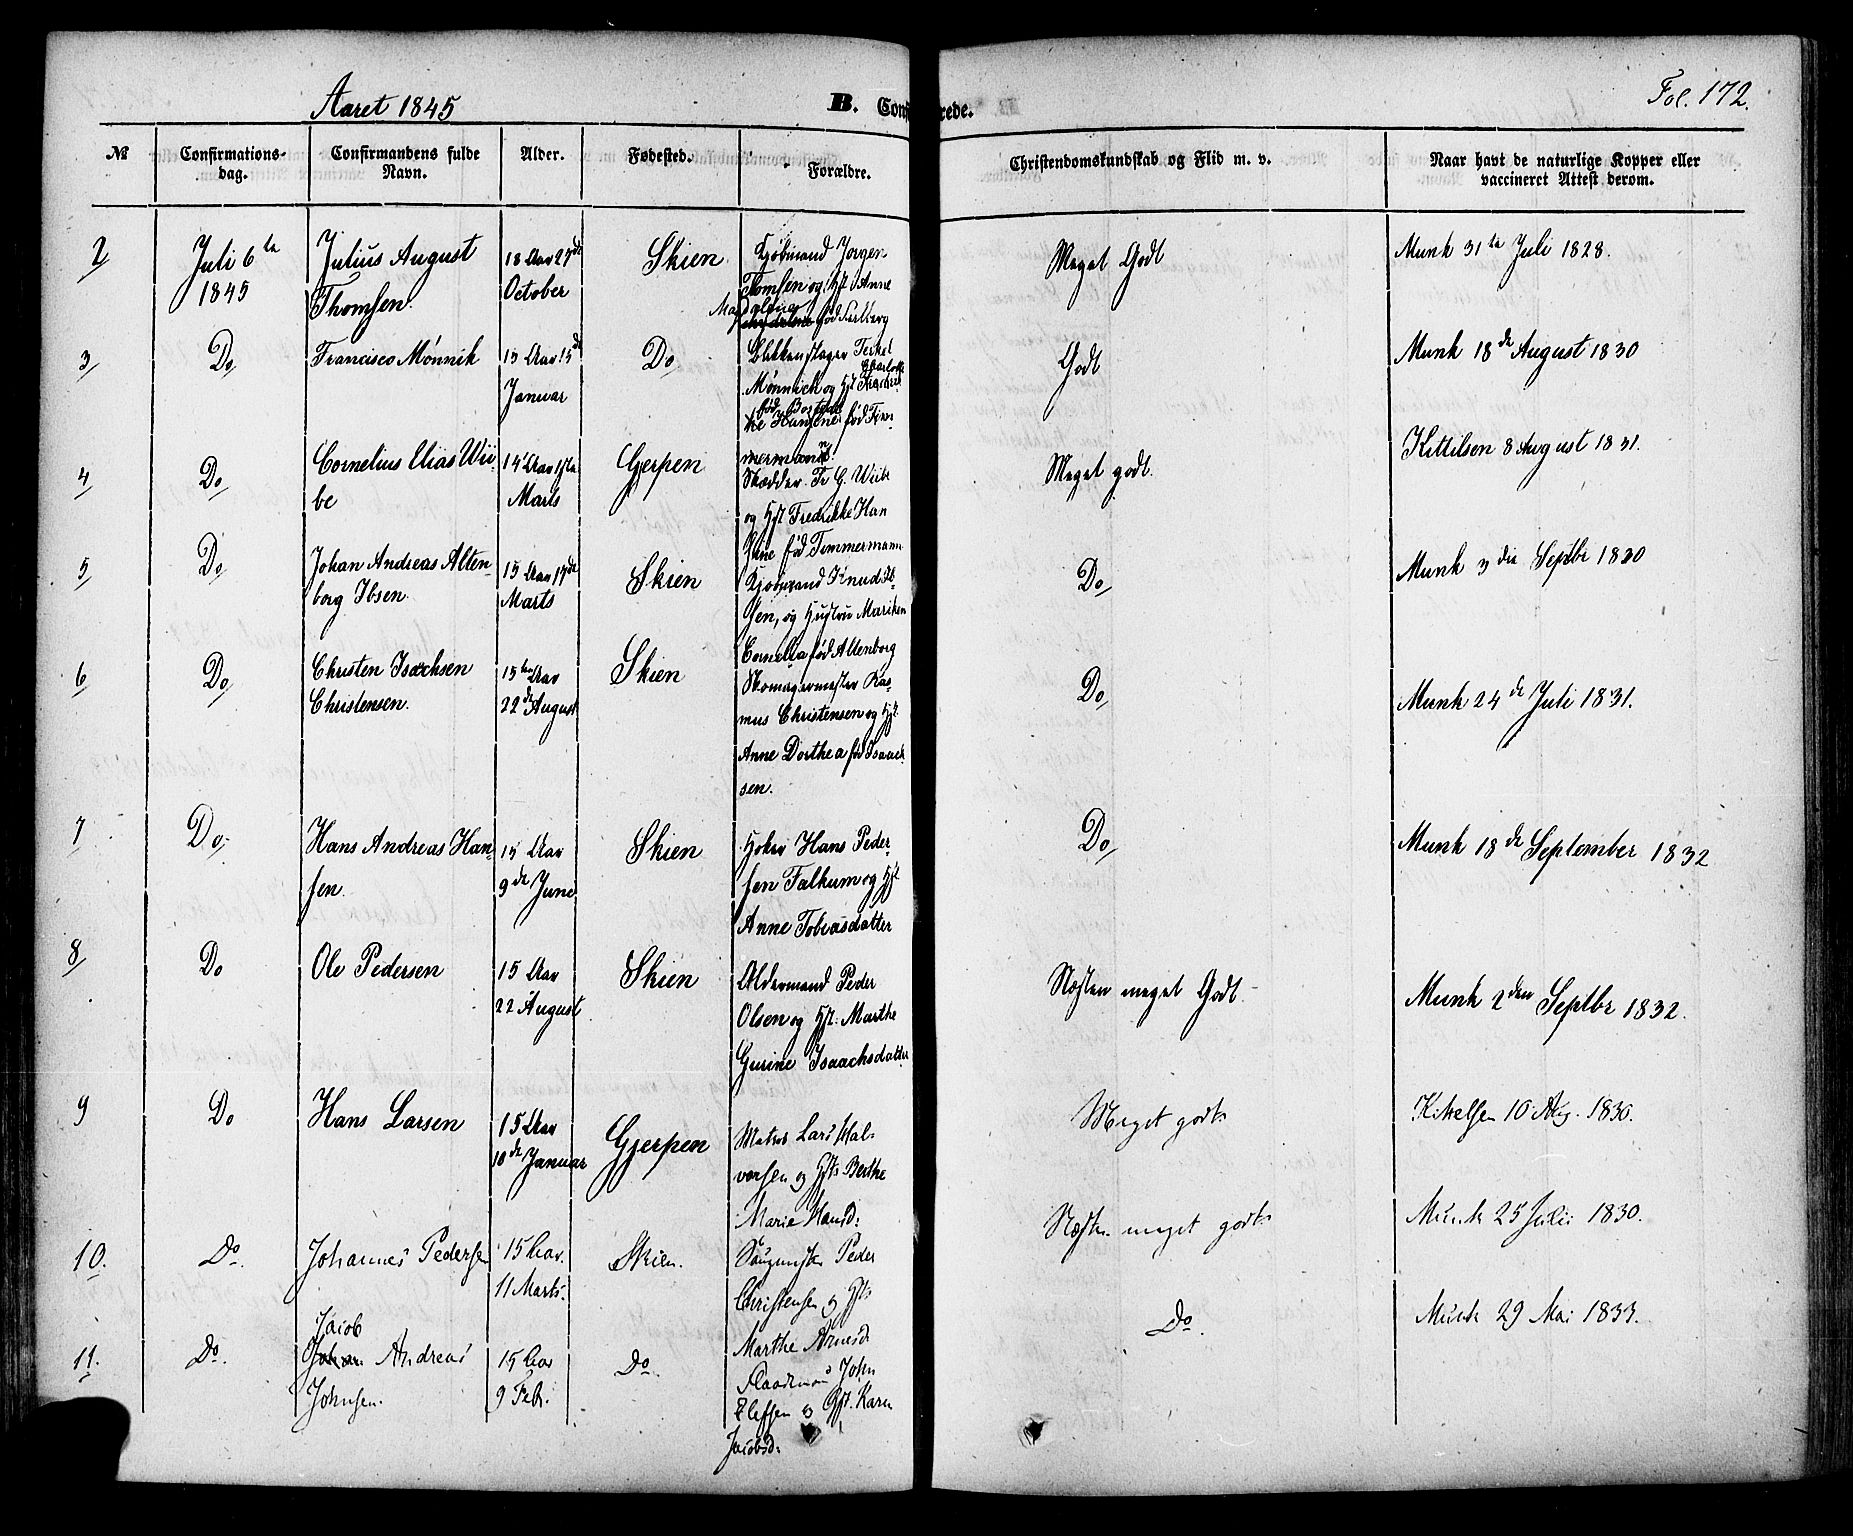 Aaret 1845
B. Conf
rede.
Fol. 172.
№
Confirmations-
dag.
Confirmandens fulde
Navn.
Alder.
Fødested.
Forældre.
Christendomskundskab og Flid m. v.
Naar havt de naturlige Kopper eller
vaccineret Attest derom.
2/
Juli 6te
1845
Julius August
Thomsen.
18 Aar 27de
October
Skien
Kjøbmand Jørgen
Thomsen og Hst Anne
Magdalena
født
Meget Godt
Munk 31te Juli 1828.
3/
Do/
Francisco Mønnik
15 Aar 15de
Januar
Do/
Blikkenslager Terkel
Charlotte
Mønnich og Hst
født
the Hansine født Tim
mermann.
Godt
Munk 18de August 1830
4/
Do/
Cornelius Elias Wii-
be
14 Aar 17te
Marts
Gjerpen
Skrædder Fr G. Wiibe
og Hst Fredrikke Han
sine født Timmermann
Meget godt.
Kittilsen 8 August 1831.
5/
Do/
Johan Andreas Alten-
borg Ibsen.
15 Aar 17de
Marts
Skien
Kjøbmand Knud Ib-
sen, og Hustru Mariken
Cornelia født Altenborg
Do/
Munk 3die Septbr 1830
6/
Do/
Christen Isachsen
Christensen.
15 Aar
22de August
Skien
Skomagermester Ras-
mus Christensen og Hst.
Anne Dorthea født Isaach
sen.
Do/
Munk 24de Juli 1831.
7
Do/
Hans Andreas Han-
sen.
15 Aar
9de June
Skien
Høker Hans Peder-
sen Falkum og Hst
Anne Tobiasdatter
Do/
Munk 18de September 1832
8/
Do
Ole Pedersen
15 Aar
22 August
Skien
Oldermand Peder
Olsen og Hst. Marthe
Gurine Isaachsdatter
Næsten meget Godt
Munk 2den Septbr 1832.
9
Do
Hans Larsen
15 Aar
10de Januar
Gjerpen
Matros Lars Hal-
vorsen og Hst Berthe
Marie Hansd:
Meget godt
Kittelsen 10 Aug. 1830.
10.
Do.
Johannes Pedersen
15 Aar.
11 Marts.
Skien.
Peder
Christensen og Hst
Marthe Arnesd
Næsten meget godt
Munk 25 Julii 1830.
11.
Do.
Jacob
Johan Andreas
Johnsen.
15 Aar
9 Feb.
Do.
John
Elefsen og Hst. Karen
Jacobsd:
Do.
Munk 29 Mai 1833.